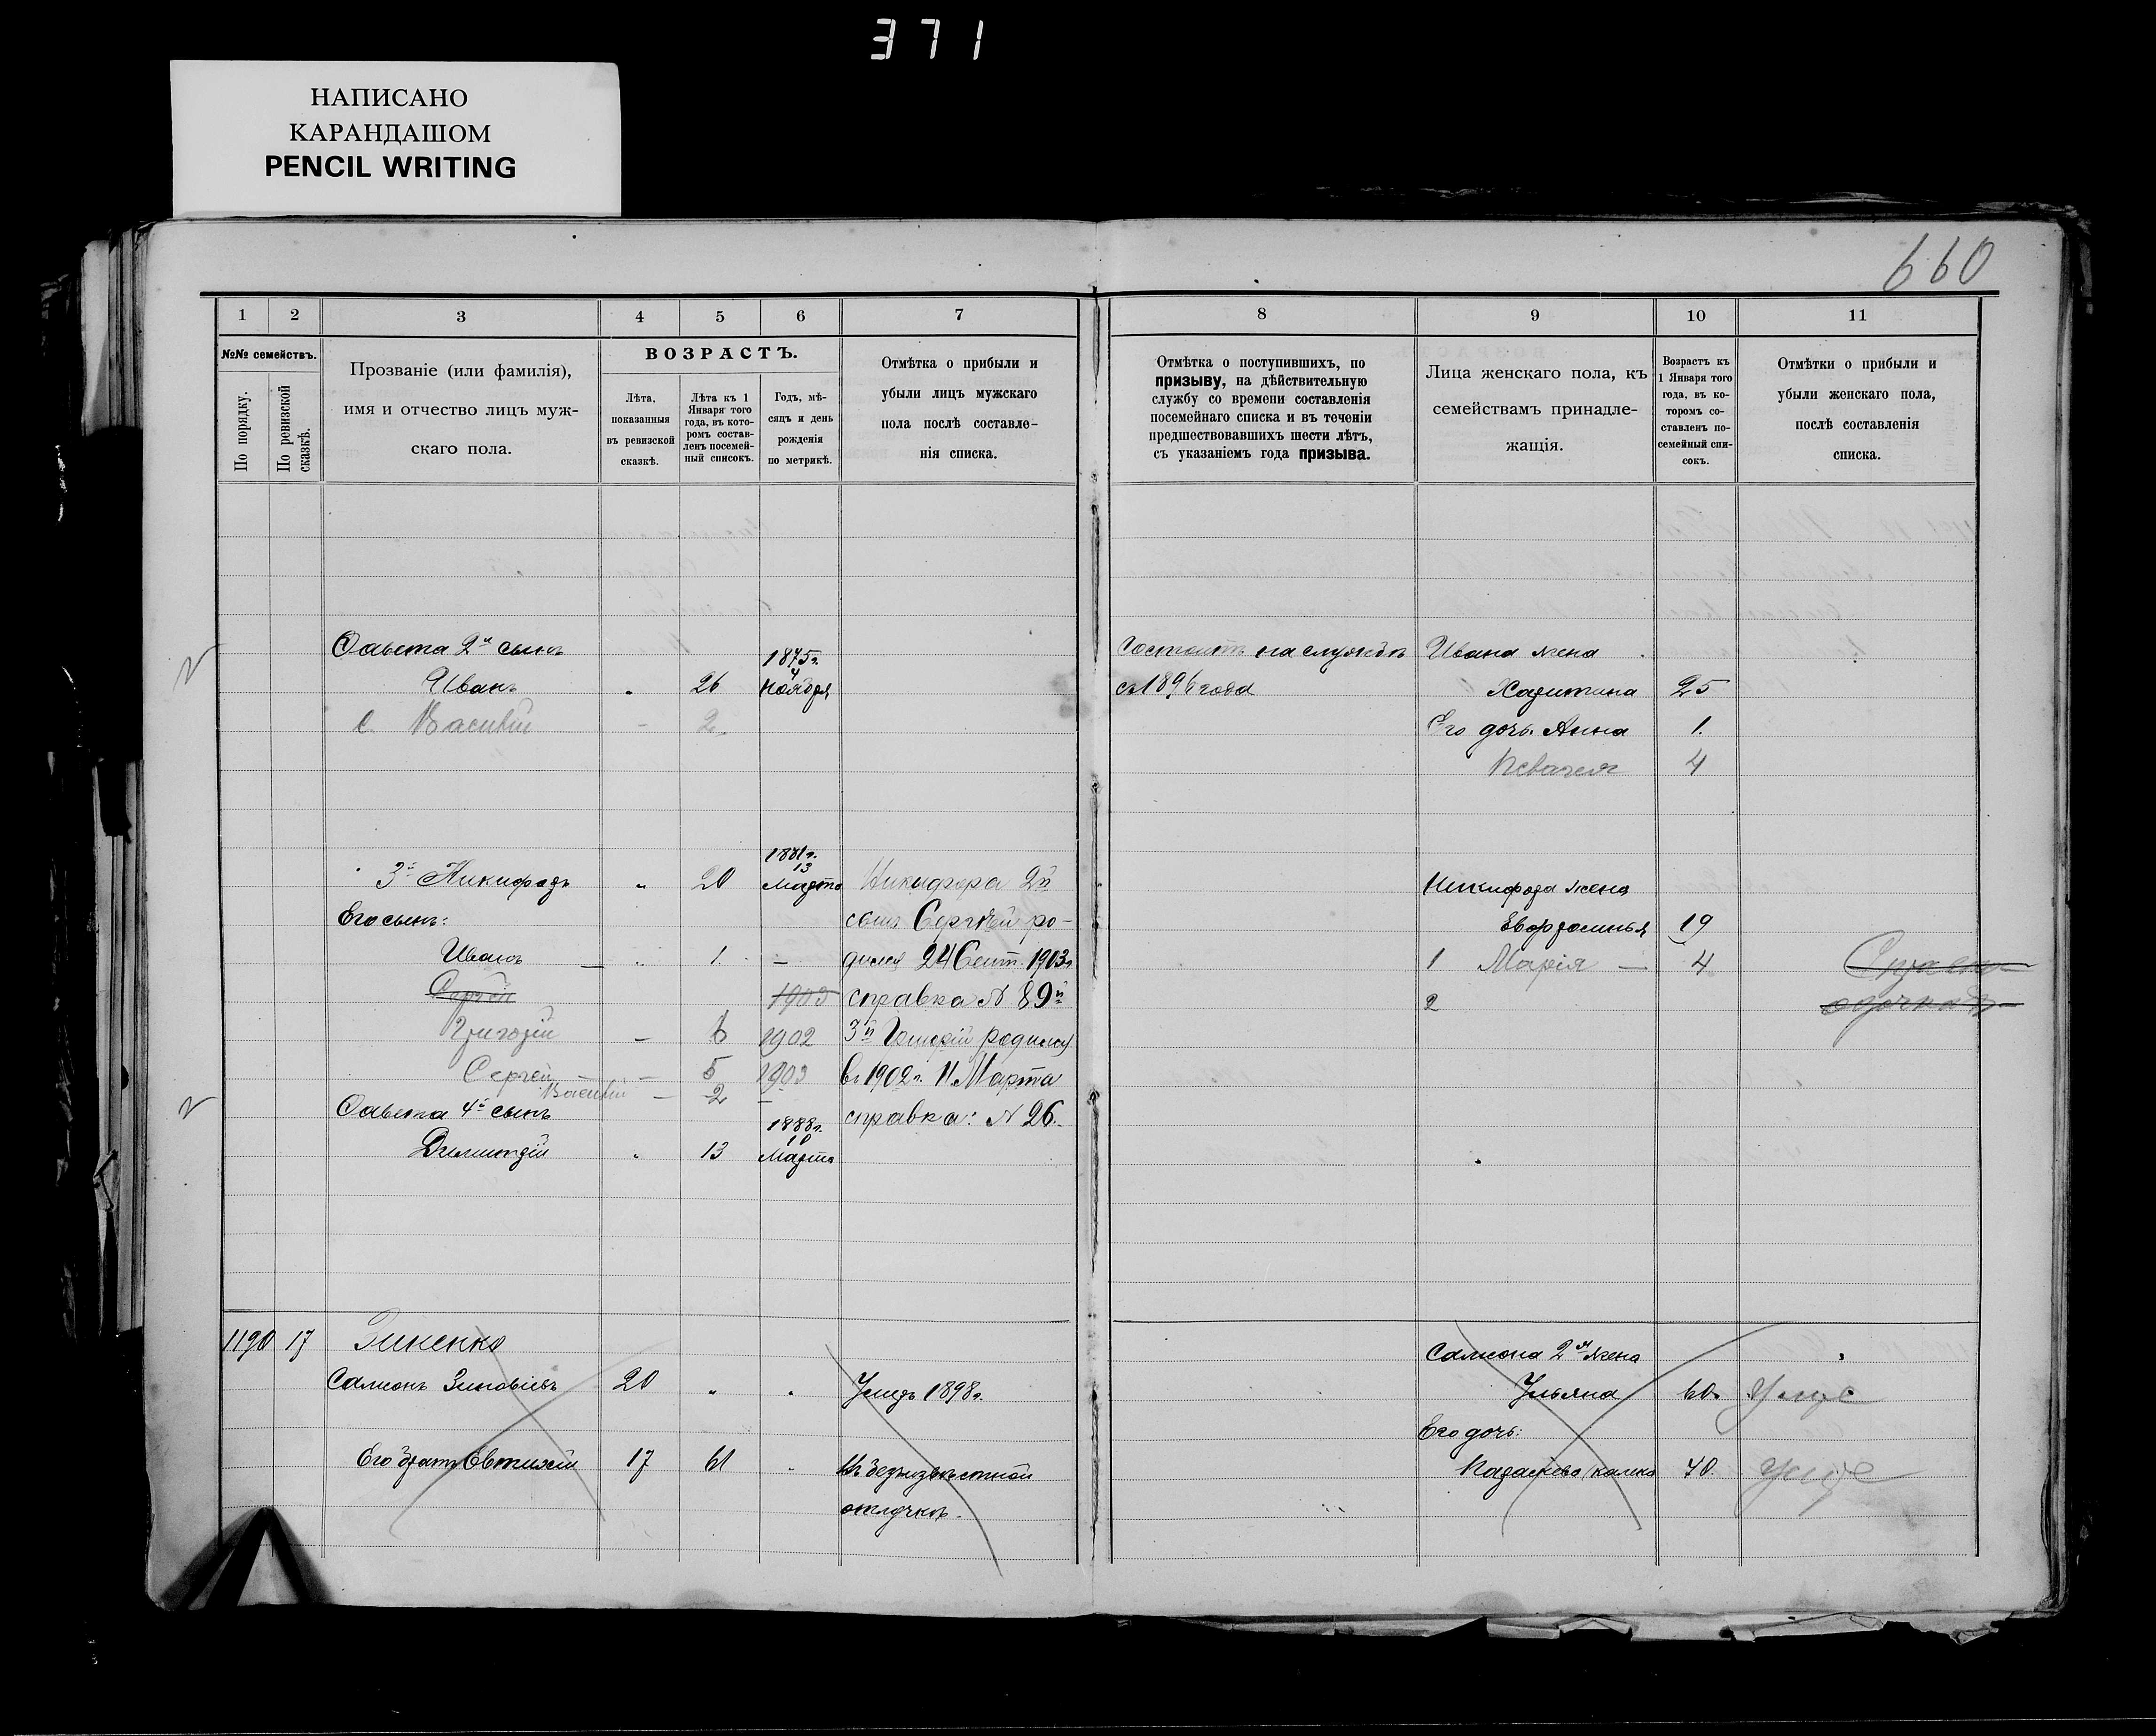 371
НАПИСАНО
КАРАНДАШОМ
PENCIL WRITING
660
1 2 3 4 5 6 7 8 9 10 11
№№ семействъ.
По порядку.
По ревизской сказкѣ.
Прозваніе (или фамилія),
имя и отчество лицъ муж-
скаго пола.
ВОЗРАСТЪ.
Лѣта,
показанныя
въ ревизской
сказкѣ.
Лѣта къ 1
Января того
года, въ кото-
ромъ состав-
ленъ посемей-
ный списокъ.
Годъ, мѣ-
сяцъ и день
рожденія
по метрикѣ.
Отмѣтка о прибыли и
убыли лицъ мужскаго
пола послѣ составле-
нія списка.
Отмѣтка о поступившихъ, по
призыву, на дѣйствительную
службу со времени составленія
посемейнаго списка и въ теченіи
предшествовавшихъ шести лѣтъ,
съ указаніемъ года призыва.
Лица женскаго пола, къ
семействамъ принадле-
жащія.
Возрастъ къ
1 Января того
года, въ ко-
торомъ со-
ставленъ по-
семейный спи-
сокъ.
Отмѣтки о прибыли и
убыли женскаго пола,
послѣ составленія
списка.
Савета 2й сынъ 1875г. Состоитъ на службѣ Ивана жена
Иванъ 26 4 Ноября съ 1896 года Харитина 25
с. Василій - 2 Его дочь Анна 1.
4
1881г.
3й Никифоръ " 20 13 Марта Никифора 2й Никифора жена
Его сынъ: сынъ Сергѣй ро- Евфросинья 19
Иванъ — " 1. — дился 24 Сент. 1903г. 1 Марія — 4
Сергѣй 1903 справка № 89й 2
Григорій — 6 1902 3й Григорій родился
Сергѣй — 5 1903 въ 1902г. 11 Марта
Василій — 2 —
Савета 4й сынъ 1888г. справка: № 26.
Димитрій " 13 10 Марта
1190 17 Зиненко Самсона 2я жена
Самсонъ Зиновіевъ 20 " " Умеръ 1898г. Ульяна 60.
Его дочь:
Его братъ Евтихій 17 61 Въ безъизвѣстной 40.
отлучкѣ.